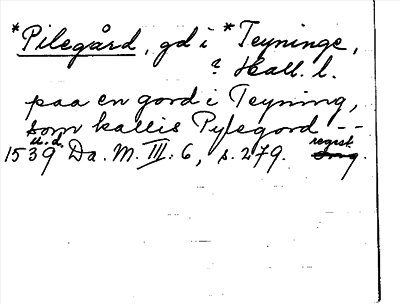 *Pilegård, gd i *Teyninge,
? Hall. l.
paa en gord i Teyning,
som kallis Pylegord --
u. d. regist
1539 Da. M. III: 6, s. 279.